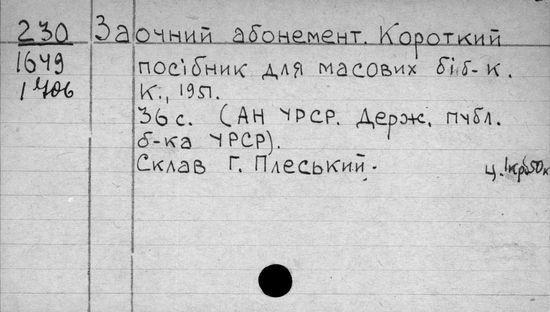 230 Заочний абонемент. Короткий
1649 посібник для масових біб-к.
1406 К., 1951.
36 с. (АН УРСР. Держ. публ.
б-ка УРСР).
Склав Г. Плеський. ц. 1 крб 50 к